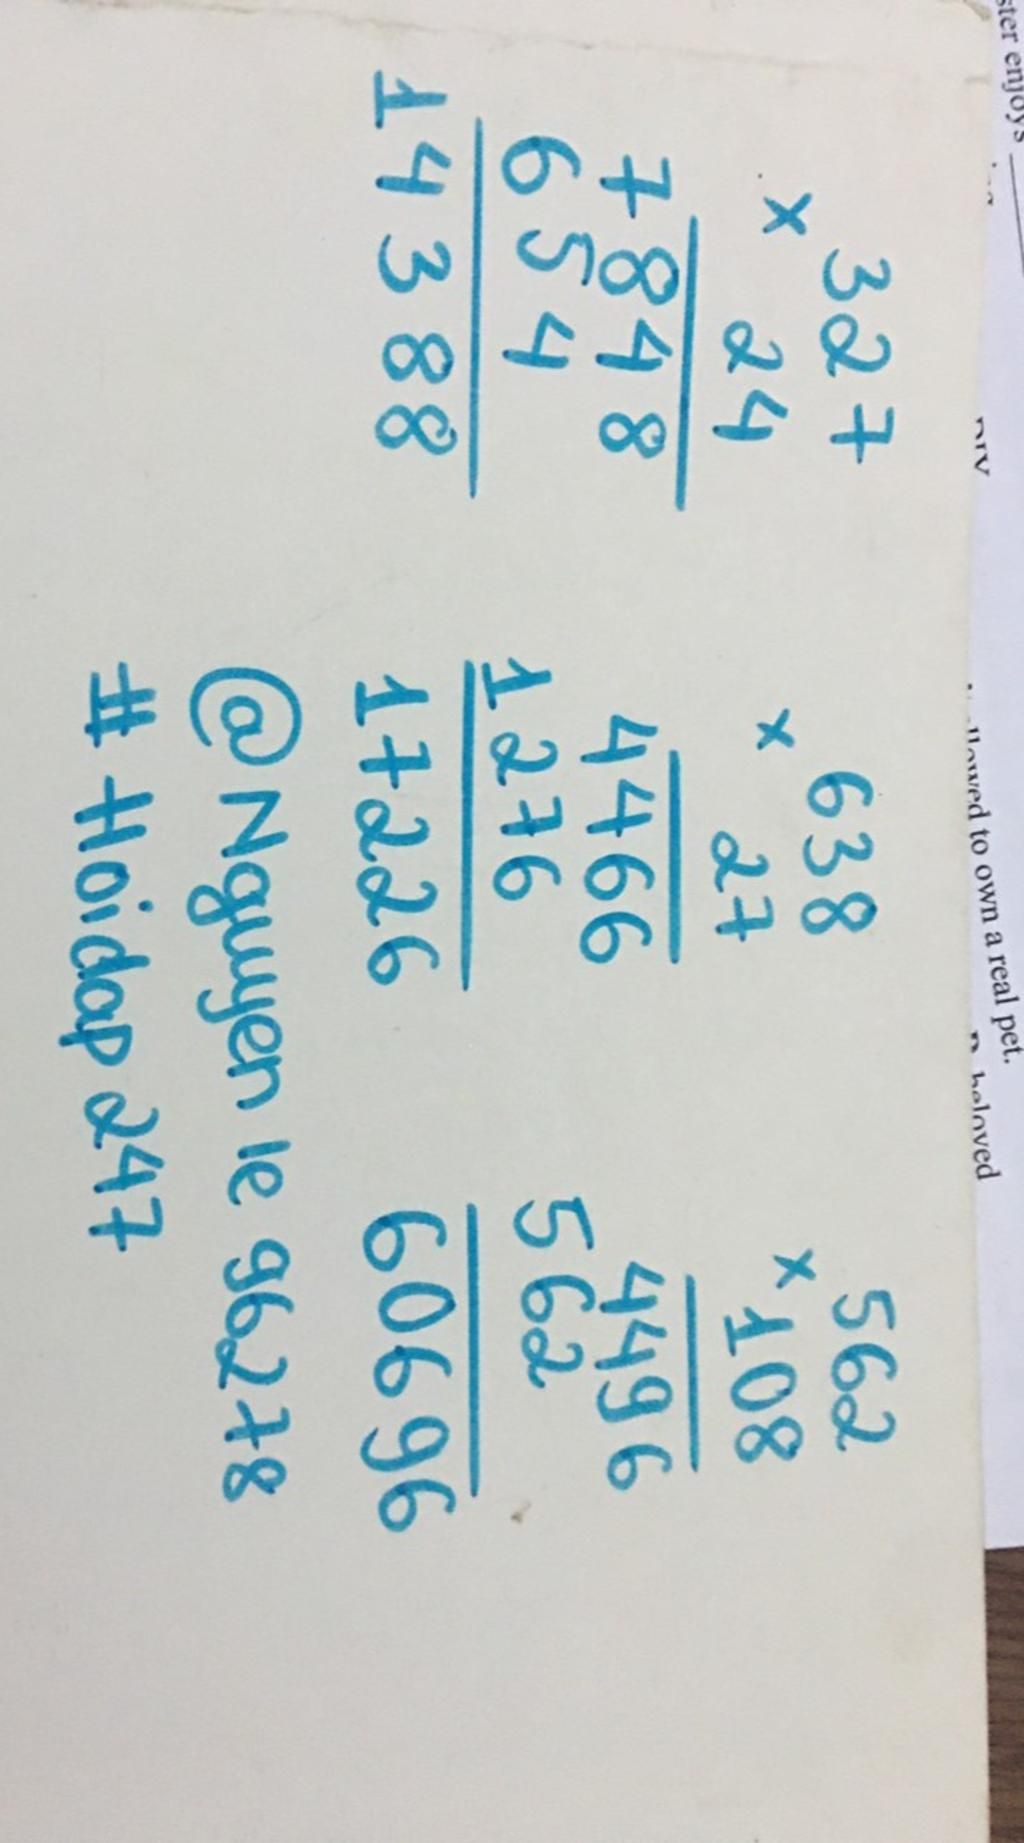 327
× 24
7848
654
14388
638
× 27
4466
1276
17226
562
× 108
4496
562
60696
@Nguyen le 96278
# Hoidap 247
ster enjoys
llowed to own a real pet.
beloved